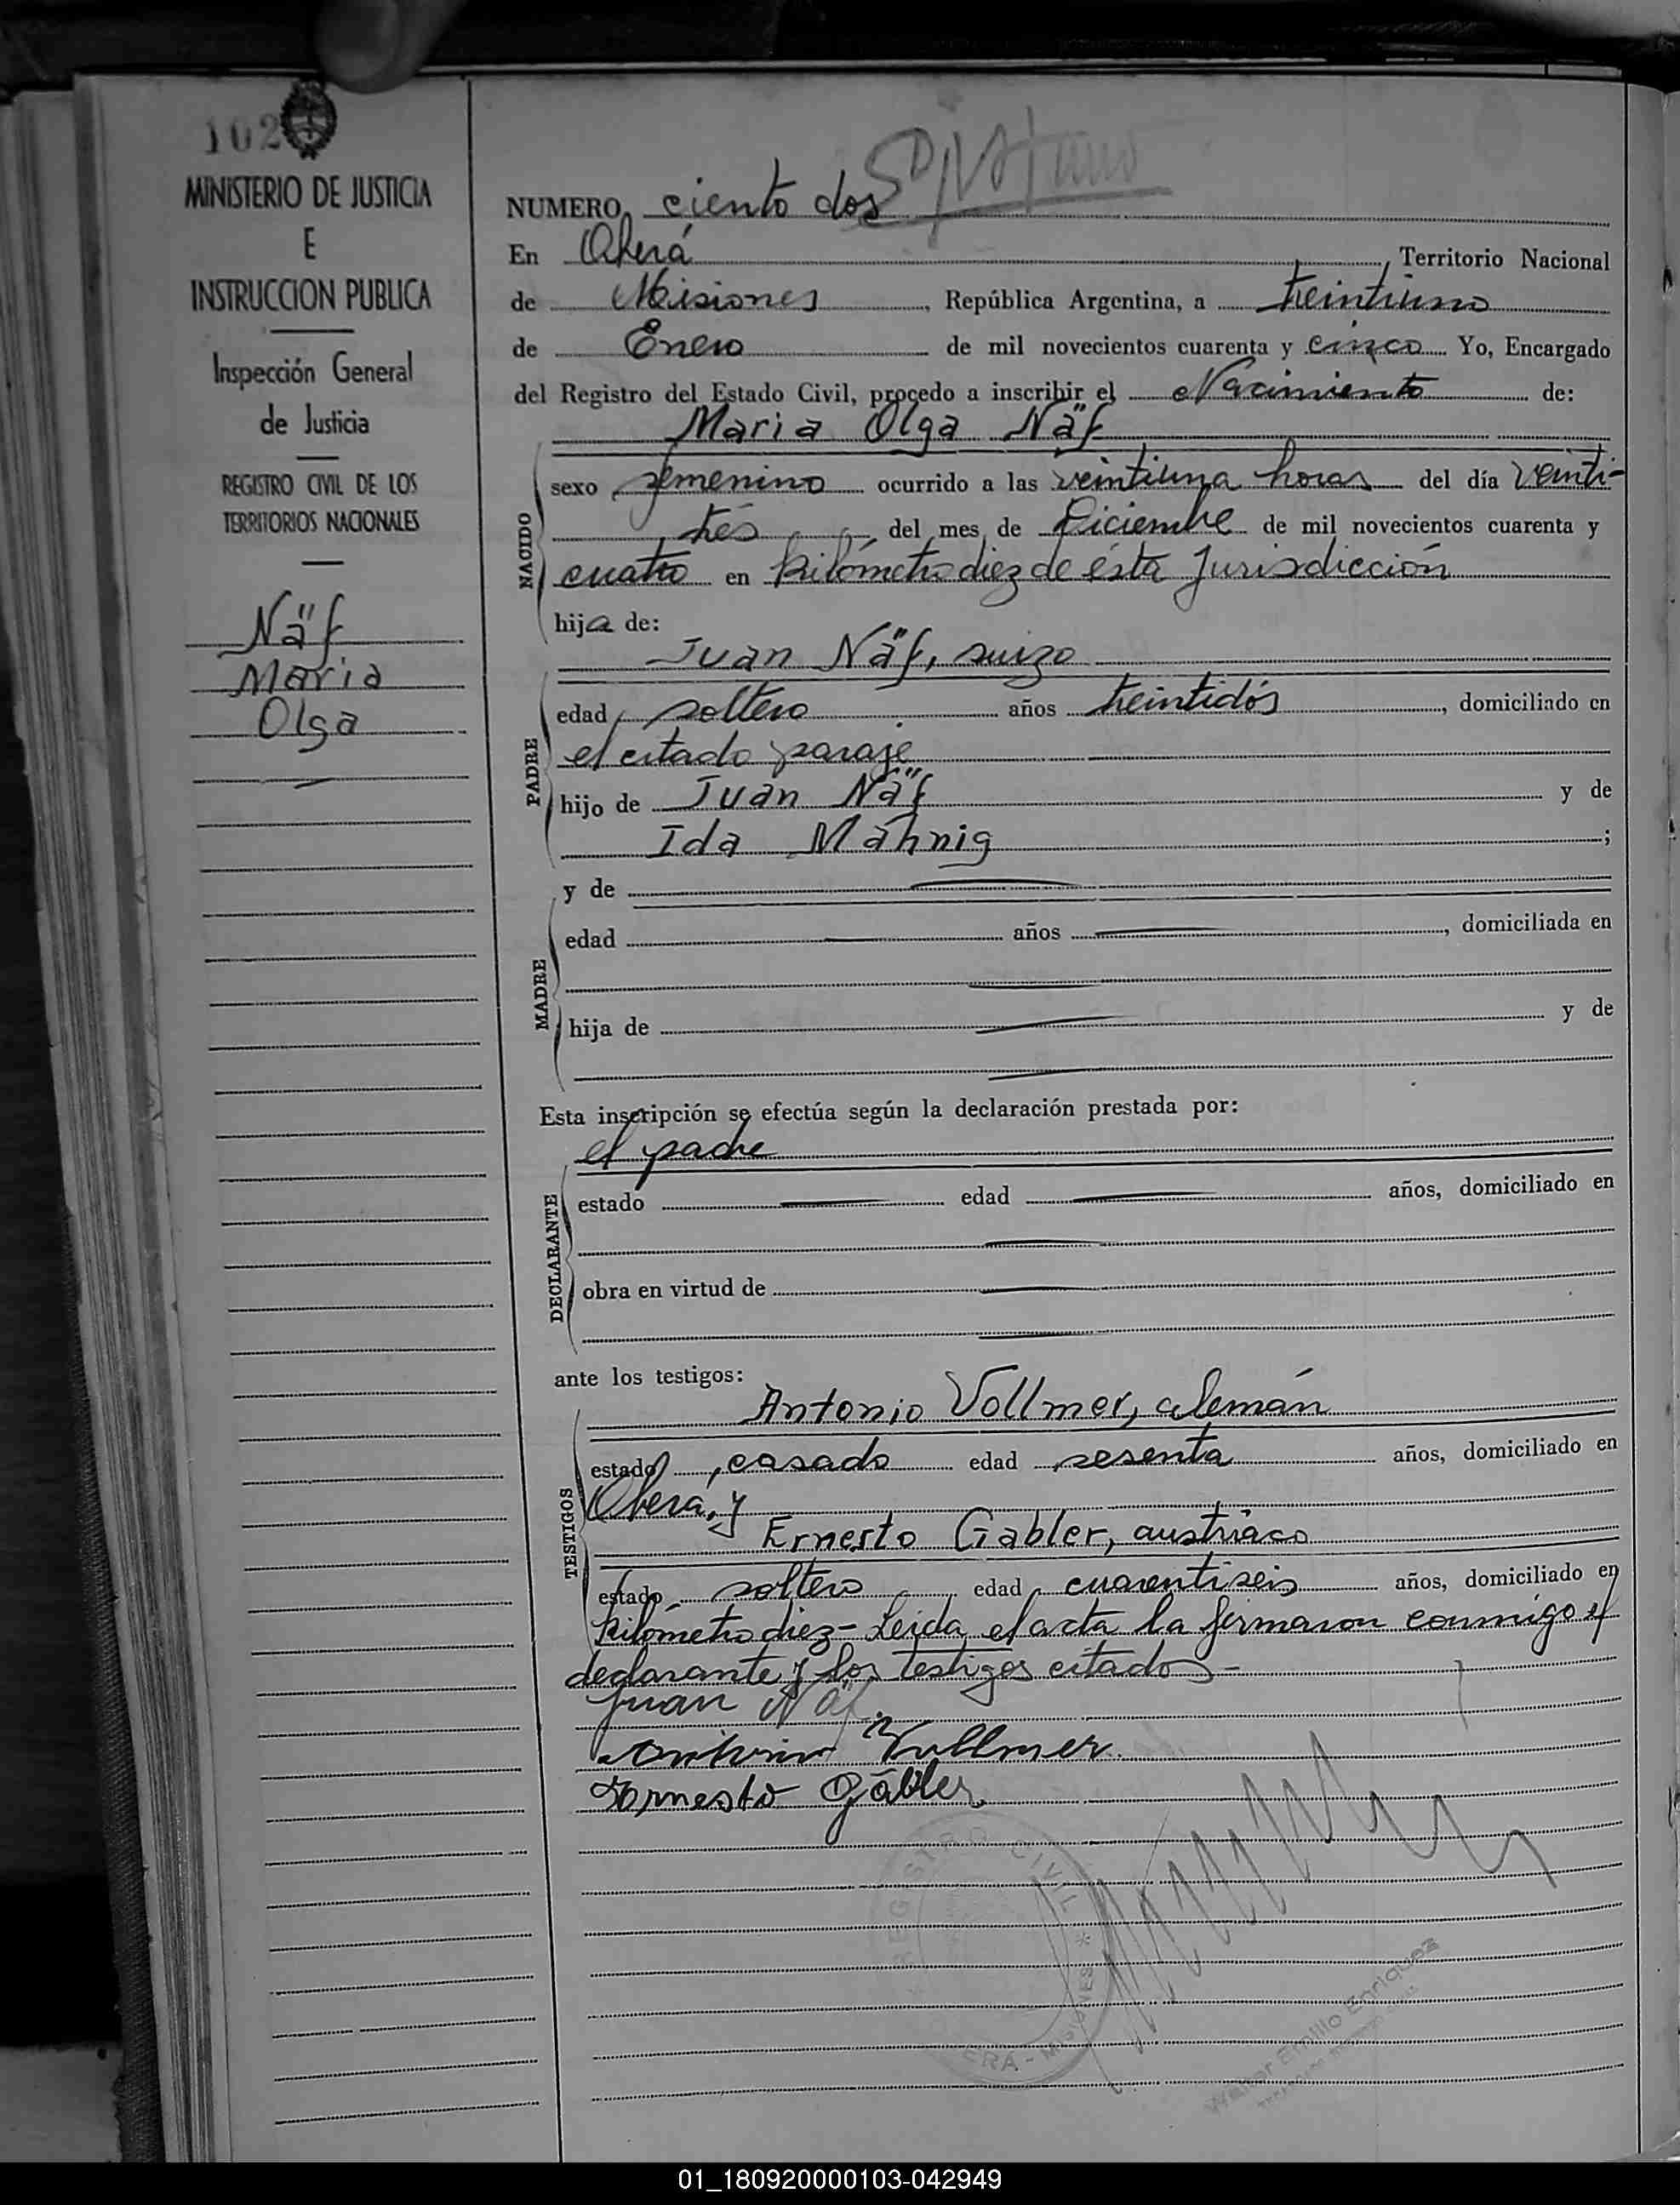 102
MINISTERIO DE JUSTICIA
E
INSTRUCCION PUBLICA
Inspección General
de Justicia
REGISTRO CIVIL DE LOS
TERRITORIOS NACIONALES
Näf
Maria
Olga
NUMERO ciento dos
En Oberá, Territorio Nacional
de Misiones, República Argentina, a treintiuno
de Enero de mil novecientos cuarenta y cinco Yo, Encargado
del Registro del Estado Civil, procedo a inscribir el Nacimiento de:
Maria Olga Näf
NACIDO
sexo femenino ocurrido a las veintiuna horas del día veinti-
trés, del mes de Diciembre de mil novecientos cuarenta y
cuatro en kilómetro diez de ésta Jurisdicción
hija de:
Juan Näf, suizo
PADRE
edad soltero años treintidós, domiciliado en
el citado paraje
hijo de Juan Näf y de
Ida Mähnig;
y de
MADRE
edad años, domiciliada en
hija de y de
Esta inscripción se efectúa según la declaración prestada por:
el padre
DECLARANTE
estado edad años, domiciliado en
obra en virtud de
ante los testigos:
Antonio Vollmer, alemán
TESTIGOS
estado casado edad sesenta años, domiciliado en
Oberá, y
Ernesto Gabler, austriaco
estado soltero edad cuarentiseis años, domiciliado en
kilómetro diez- Leida el acta la firmaron conmigo el
declarante y los testigos citados-
Juan Näf
Antonio Vollmer
Ernesto Gäbler
REGISTRO CIVIL * OBERÁ - MISIONES *
Walter Emilio Enriquez
01_180920000103-042949